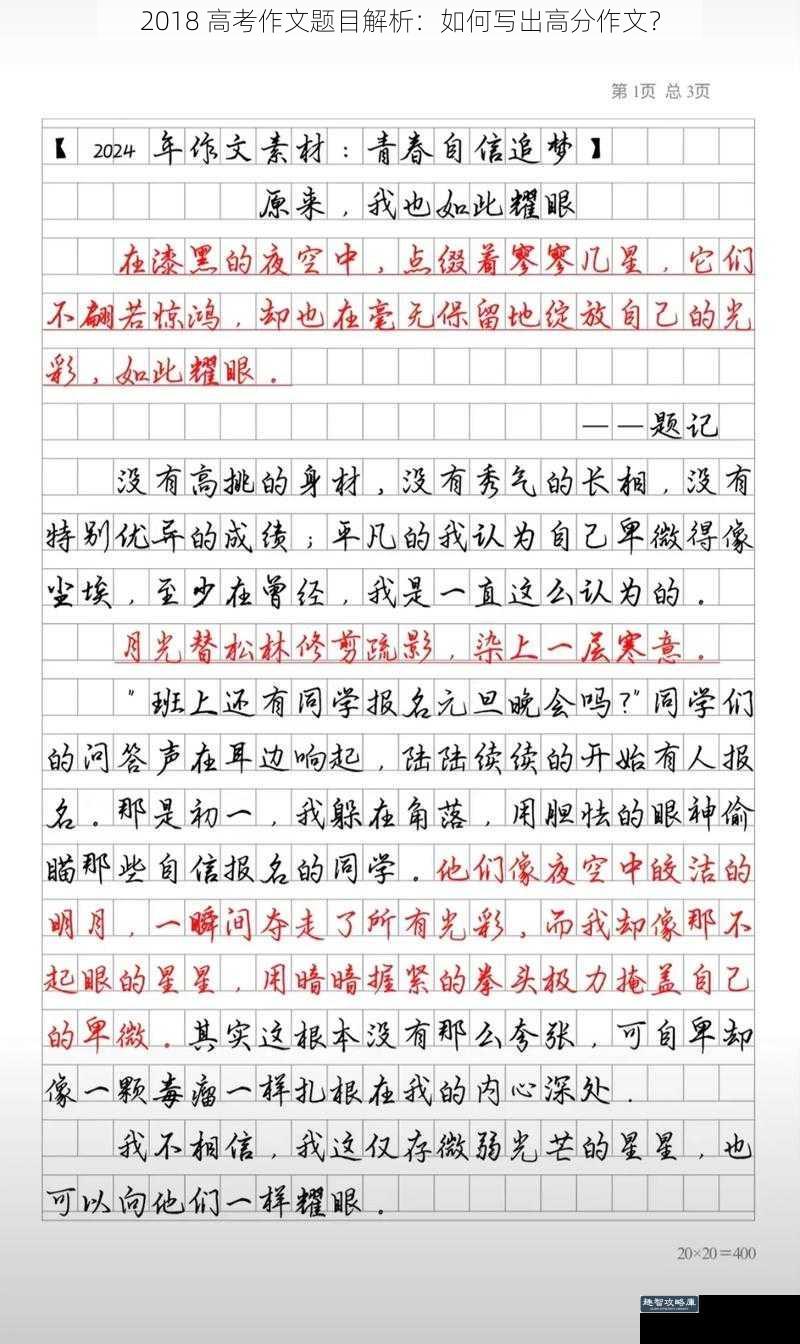 2018 高考作文题目解析：如何写出高分作文？
第1页 总3页
【 2024 年作文素材：青春自信追梦】
原来，我也如此耀眼
在漆黑的夜空中，点缀着寥寥几星，它们
不翩若惊鸿，却也在毫无保留地绽放自己的光
彩，如此耀眼。
——题记
没有高挑的身材，没有秀气的长相，没有
特别优异的成绩；平凡的我认为自己卑微得像
尘埃，至少在曾经，我是一直这么认为的。
月光替松林修剪疏影，染上一层寒意。
"班上还有同学报名元旦晚会吗?"同学们
的问答声在耳边响起，陆陆续续的开始有人报
名。那是初一，我躲在角落，用胆怯的眼神偷
瞄那些自信报名的同学。他们像夜空中皎洁的
明月，一瞬间夺走了所有光彩，而我却像那不
起眼的星星，用暗暗握紧的拳头极力掩盖自己
的卑微。其实这根本没有那么夸张，可自卑却
像一颗毒瘤一样扎根在我的内心深处.
我不相信，我这仅存微弱光芒的星星，也
可以向他们一样耀眼。
20×20=400
趣智攻略库